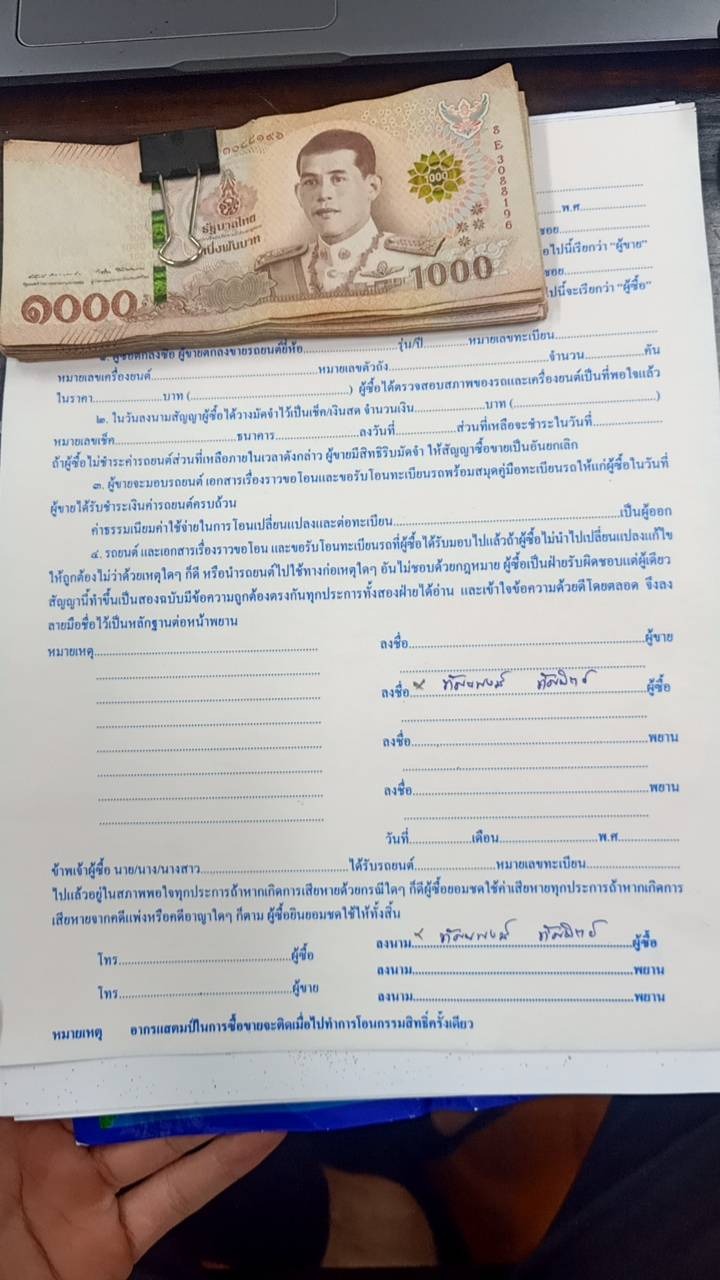 ๓๐๘๘๑๙๖
8 E 3088196
1000
รัฐบาลไทย
หนึ่งพันบาท
๑๐๐๐
1000
พ.ศ.
ซอย
ไปนี้เรียกว่า "ผู้ขาย"
ซอย
ไปนี้จะเรียกว่า "ผู้ซื้อ"
๑. ผู้ซื้อตกลงซื้อ ผู้ขายตกลงขายรถยนต์ยี่ห้อ รุ่น/ปี หมายเลขทะเบียน
หมายเลขเครื่องยนต์ หมายเลขตัวถัง จำนวน คัน
ในราคา บาท ( ) ผู้ซื้อได้ตรวจสอบสภาพของรถและเครื่องยนต์เป็นที่พอใจแล้ว
๒. ในวันลงนามสัญญาผู้ซื้อได้วางมัดจำไว้เป็นเช็ค/เงินสด จำนวนเงิน บาท ( )
หมายเลขเช็ค ธนาคาร ลงวันที่ ส่วนที่เหลือจะชำระในวันที่
ถ้าผู้ซื้อไม่ชำระค่ารถยนต์ส่วนที่เหลือภายในเวลาดังกล่าว ผู้ขายมีสิทธิริบมัดจำ ให้สัญญาซื้อขายเป็นอันยกเลิก
๓. ผู้ขายจะมอบรถยนต์ เอกสารเรื่องราวขอโอนและขอรับโอนทะเบียนรถพร้อมสมุดคู่มือทะเบียนรถให้แก่ผู้ซื้อในวันที่
ผู้ขายได้รับชำระเงินค่ารถยนต์ครบถ้วน
ค่าธรรมเนียมค่าใช้จ่ายในการโอนเปลี่ยนแปลงและต่อทะเบียน เป็นผู้ออก
๔. รถยนต์ และเอกสารเรื่องราวขอโอน และขอรับโอนทะเบียนรถที่ผู้ซื้อได้รับมอบไปแล้วถ้าผู้ซื้อไม่นำไปเปลี่ยนแปลงแก้ไข
ให้ถูกต้องไม่ว่าด้วยเหตุใดๆ ก็ดี หรือนำรถยนต์ไปใช้ทางก่อเหตุใดๆ อันไม่ชอบด้วยกฎหมาย ผู้ซื้อเป็นฝ่ายรับผิดชอบแต่ผู้เดียว
สัญญานี้ทำขึ้นเป็นสองฉบับมีข้อความถูกต้องตรงกันทุกประการทั้งสองฝ่ายได้อ่าน และเข้าใจข้อความด้วยดีโดยตลอด จึงลง
ลายมือชื่อไว้เป็นหลักฐานต่อหน้าพยาน
หมายเหตุ ลงชื่อ ผู้ขาย
ลงชื่อ ผู้ซื้อ
ลงชื่อ พยาน
ลงชื่อ พยาน
วันที่ เดือน พ.ศ.
ข้าพเจ้าผู้ซื้อ นาย/นาง/นางสาว ได้รับรถยนต์ หมายเลขทะเบียน
ไปแล้วอยู่ในสภาพพอใจทุกประการถ้าหากเกิดการเสียหายด้วยกรณีใดๆ ก็ดีผู้ซื้อยอมชดใช้ค่าเสียหายทุกประการถ้าหากเกิดการ
เสียหายจากคดีแพ่งหรือคดีอาญาใดๆ ก็ตาม ผู้ซื้อยินยอมชดใช้ให้ทั้งสิ้น
โทร ผู้ซื้อ ลงนาม ผู้ซื้อ
ลงนาม พยาน
โทร ผู้ขาย ลงนาม พยาน
หมายเหตุ อากรแสตมป์ในการซื้อขายจะติดเมื่อไปทำการโอนกรรมสิทธิ์ครั้งเดียว